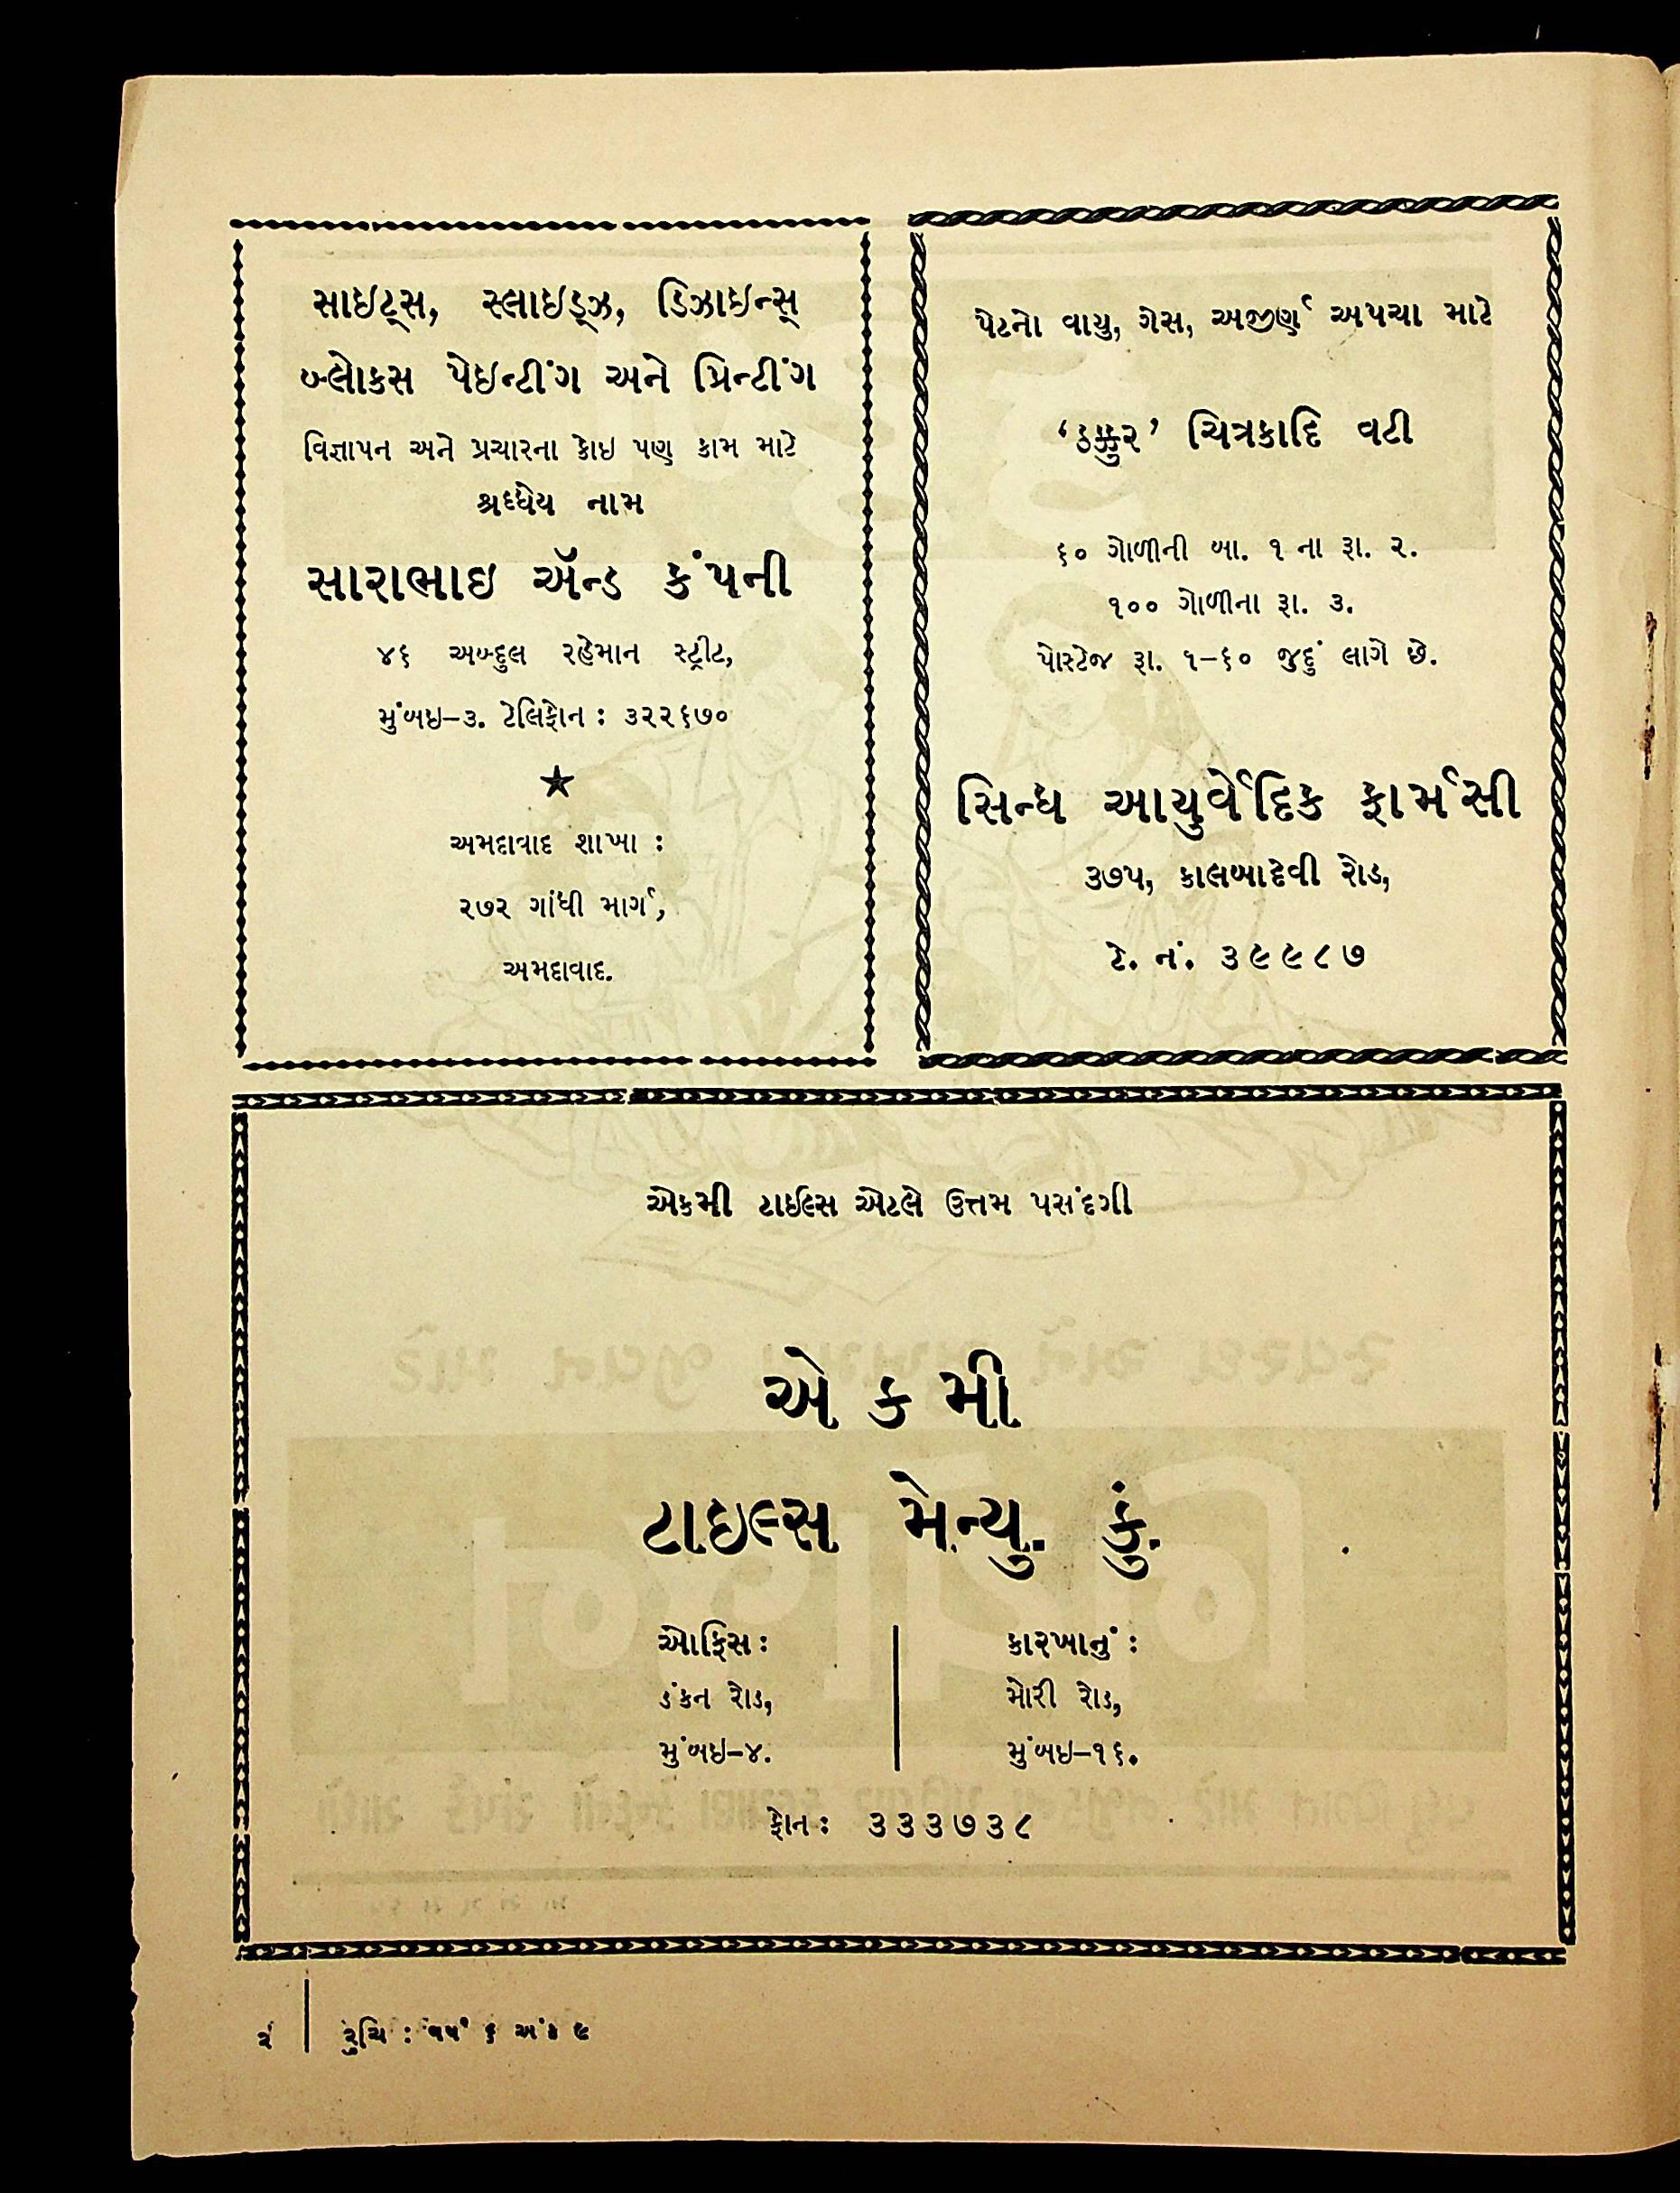 સાઇટ્સ, સ્લાઇડ્ઝ, ડિઝાઇન્સ્
બ્લોકસ પેઇન્ટીંગ અને પ્રિન્ટીંગ
વિજ્ઞાપન અને પ્રચારના કોઇ પણ કામ માટે
શ્રદ્ધેય નામ
સારાભાઇ ઍન્ડ કંપની
૪૬ અબ્દુલ રહેમાન સ્ટ્રીટ,
મુંબઇ–૩. ટેલિફોન : ૩૨૨૬૭૦
અમદાવાદ શાખા :
૨૭૨ ગાંધી માર્ગ,
અમદાવાદ.
પેટનો વાયુ, ગેસ, અજીર્ણ અપચા માટે
‘ઠક્કુર’ ચિત્રકાદિ વટી
૬૦ ગોળીની બા. ૧ ના રૂા. ૨.
૧૦૦ ગોળીના રૂા. ૩.
પોસ્ટેજ રૂા. ૧–૬૦ જુદું લાગે છે.
સિન્ધ આયુર્વેદિક ફાર્મસી
૩૭૫, કાલબાદેવી રોડ,
ટે. નં. ૩૯૯૮૭
એકમી ટાઈલ્સ એટલે ઉત્તમ પસંદગી
એ ક મી
ટાઇલ્સ મેન્યુ. કું.
ઓફિસ :
ડંકન રોડ,
મુંબઇ–૪.
કારખાનું :
મોરી રોડ,
મુંબઇ–૧૬.
ફોન : ૩૩૩૭૩૮
૨ રુચિ : વર્ષ ૬ અંક ૯